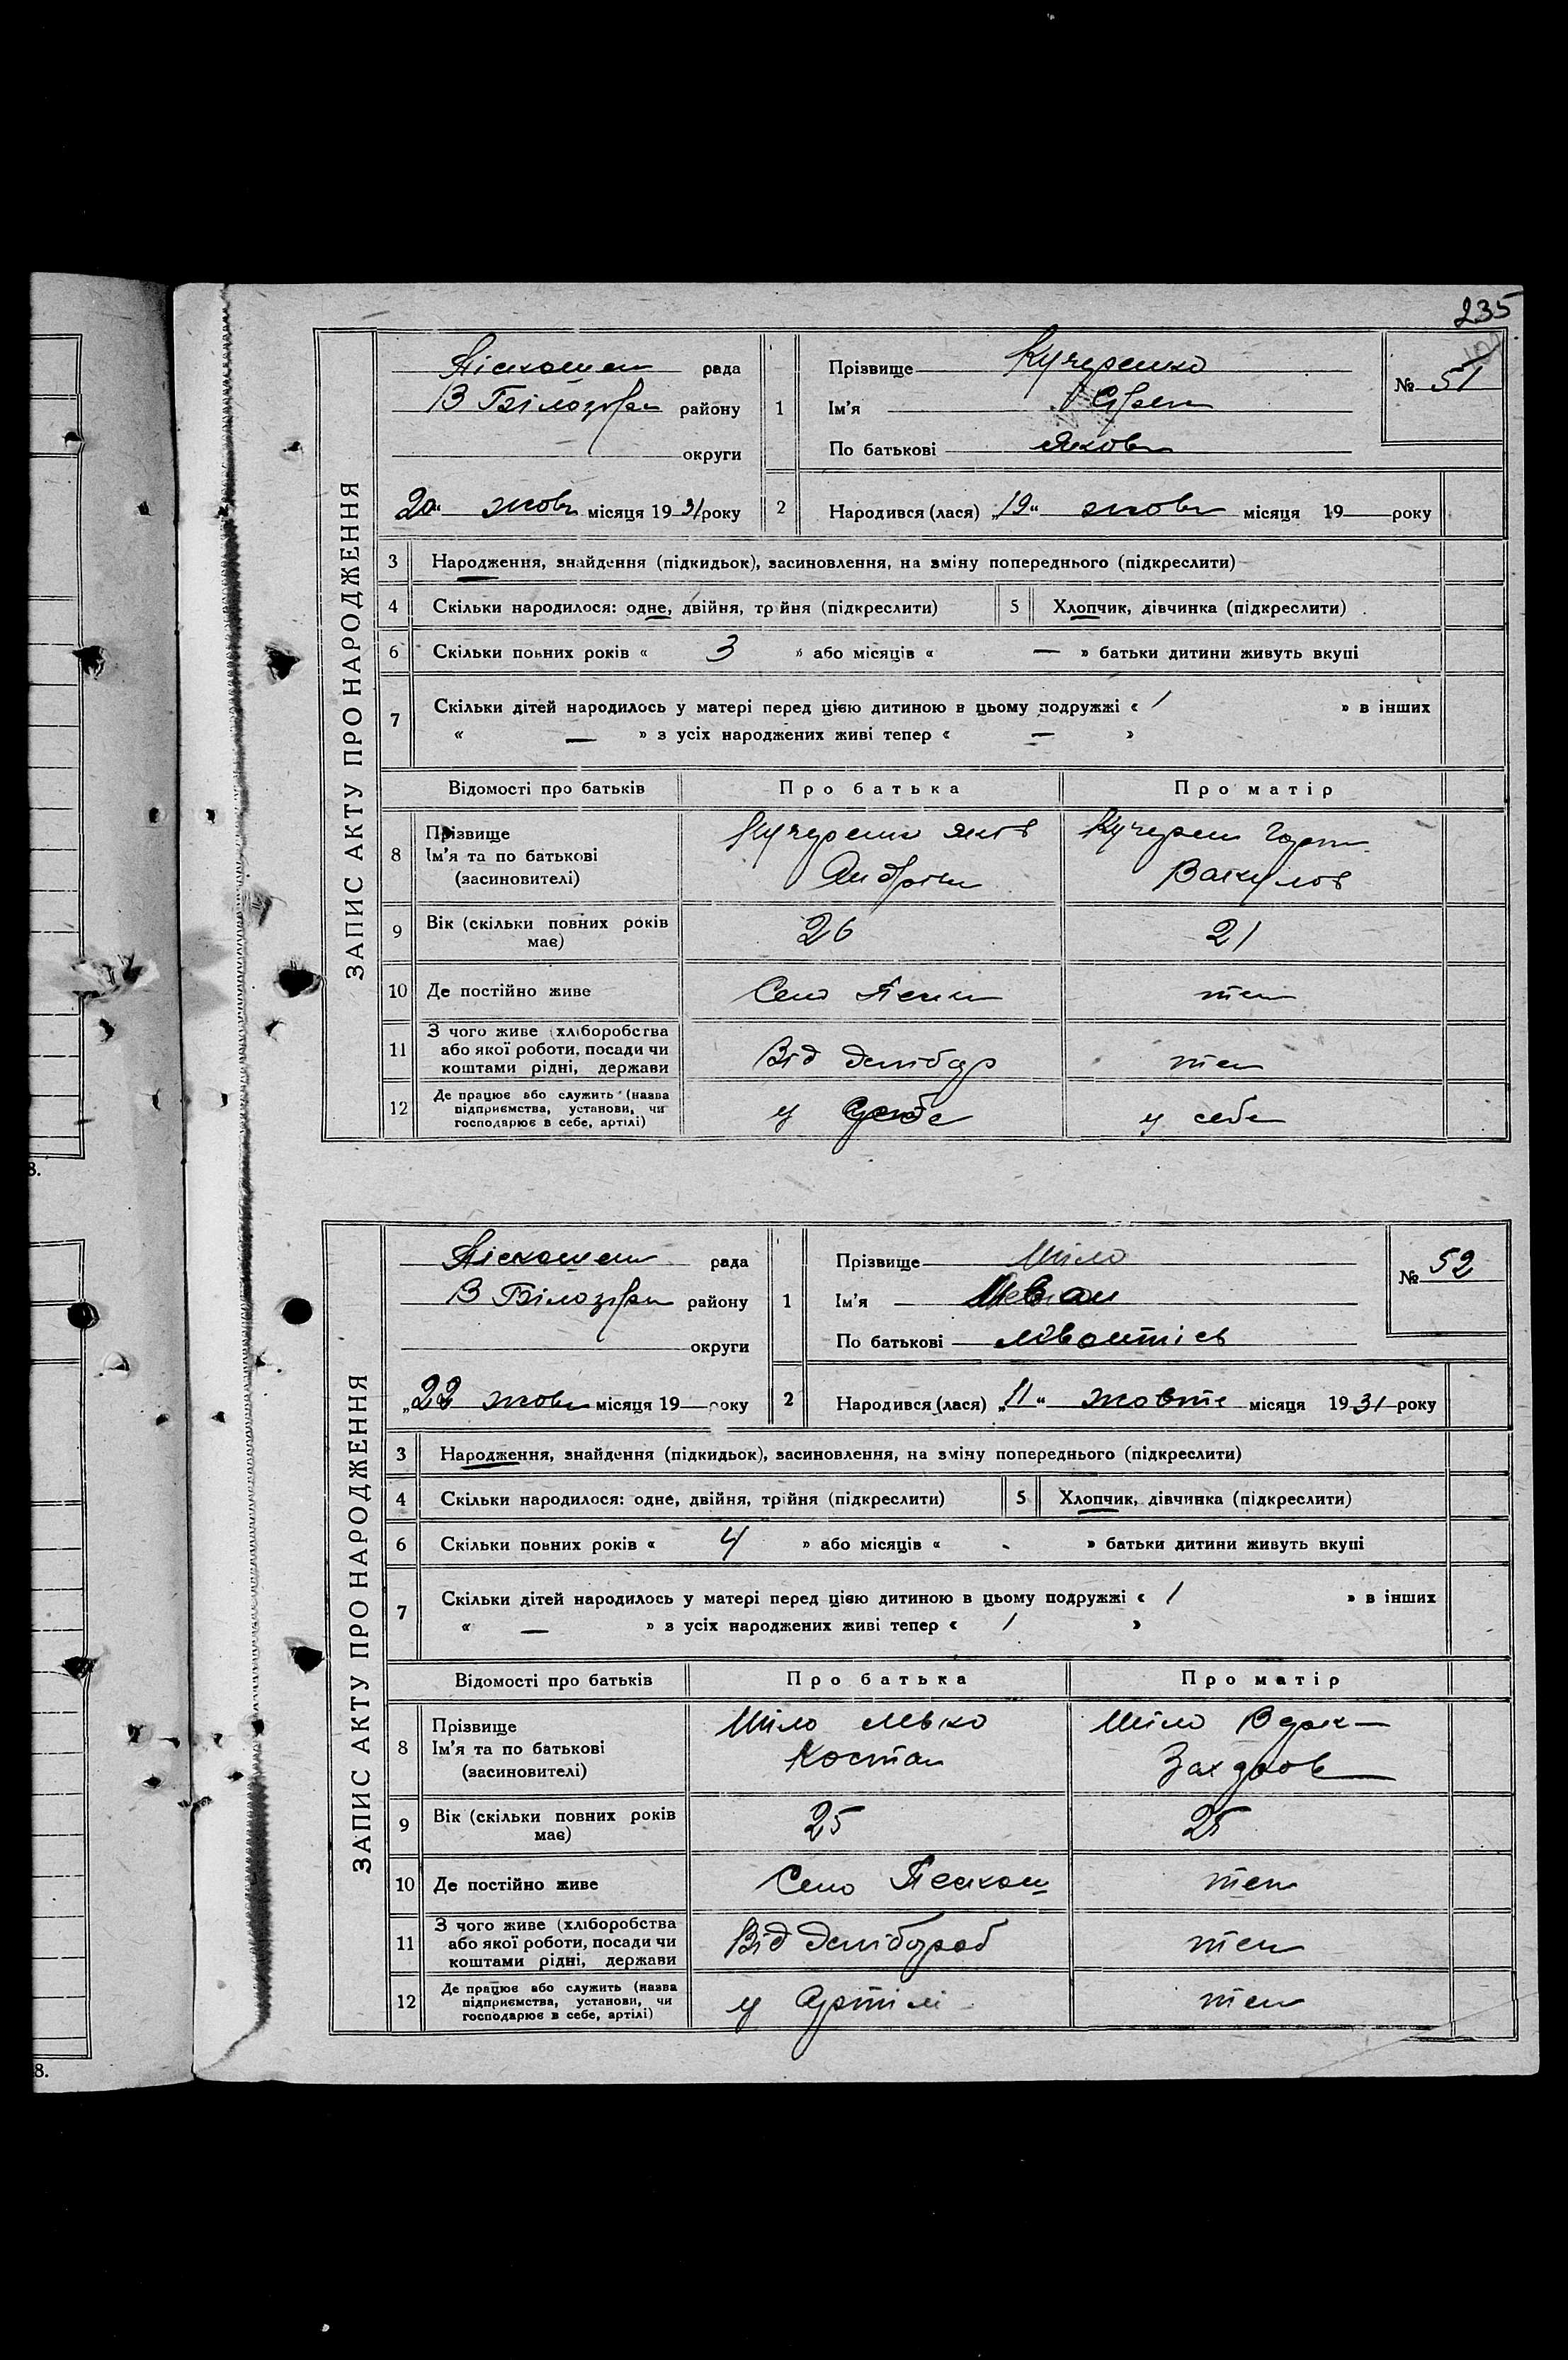 235
ЗАПИС АКТУ ПРО НАРОДЖЕННЯ
рада
В Білозірки району
округи
20 жовт місяця 1931 року
1
Прізвище Кучеренко
Ім'я
По батькові Яков
№ 51
2
Народився (лася) „19" жовт місяця 19 року
3 Народження, знайдення (підкидьок), засиновлення, на зміну попереднього (підкреслити)
4 Скільки народилося: одне, двійня, трійня (підкреслити)
5 Хлопчик, дівчинка (підкреслити)
6 Скільки повних років « 3 » або місяців « — » батьки дитини живуть вкупі
7 Скільки дітей народилось у матері перед цією дитиною в цьому подружжі « 1 » в інших
« — » з усіх народжених живі тепер « — »
Відомості про батьків Про батька Про матір
8 Прізвище
Ім'я та по батькові
(засиновителі)
Кучеренко Яків
Андрієв
Кучерен
Вакулов
9 Вік (скільки повних років
має)
26
21
10 Де постійно живе
Село
теж
11 З чого живе (хліборобства
або якої роботи, посади чи
коштами рідні, держави
Від
теж
12 Де працює або служить (назва
підприємства, установи, чи
господарює в себе, артілі)
у себе
у себе
ЗАПИС АКТУ ПРО НАРОДЖЕННЯ
рада
В Білозірки району
округи
„22 жовт місяця 19 року
1
Прізвище Шило
Ім'я
По батькові
№ 52
2
Народився (лася) „11" жовтн місяця 1931 року
3 Народження, знайдення (підкидьок), засиновлення, на зміну попереднього (підкреслити)
4 Скільки народилося: одне, двійня, трійня (підкреслити)
5 Хлопчик, дівчинка (підкреслити)
6 Скільки повних років « 4 » або місяців « - » батьки дитини живуть вкупі
7 Скільки дітей народилось у матері перед цією дитиною в цьому подружжі « 1 » в інших
« — » з усіх народжених живі тепер « 1 »
Відомості про батьків Про батька Про матір
8 Прізвище
Ім'я та по батькові
(засиновителі)
Шило Левко
Костан
Шило
Захаров
9 Вік (скільки повних років
має)
25
25
10 Де постійно живе
Село Пескош
теж
11 З чого живе (хліборобства
або якої роботи, посади чи
коштами рідні, держави
Від
теж
12 Де працює або служить (назва
підприємства, установи, чи
господарює в себе, артілі)
у Артілі
теж
8.
8.